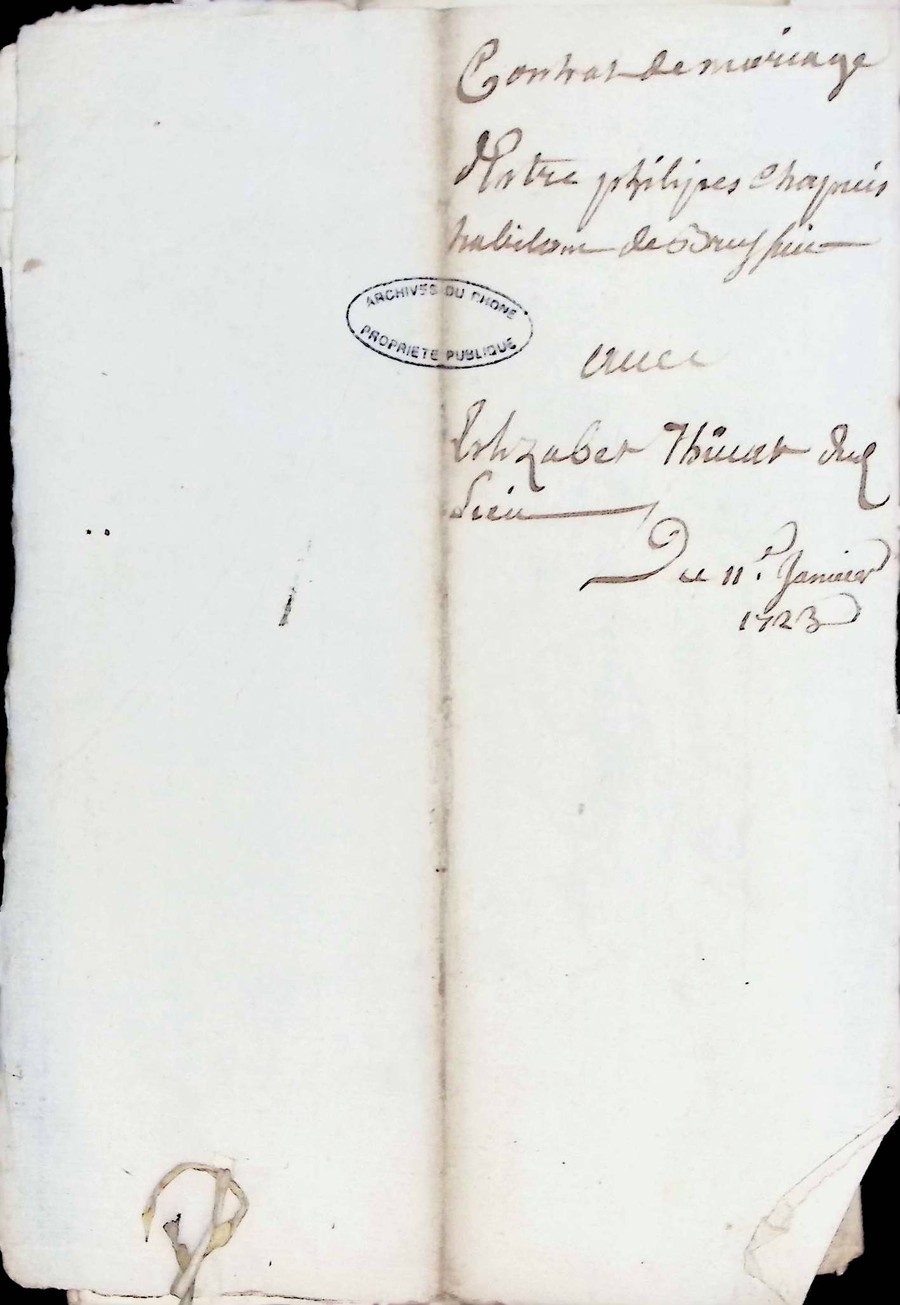 Contrat de mariage
d'Entre philipes Chapuis
habitant de Brussieu
ARCHIVES DU RHONE
PROPRIETE PUBLIQUE
avec
Elizabet Thiuat dud
Lieu
Du 11e. Janvier
1723